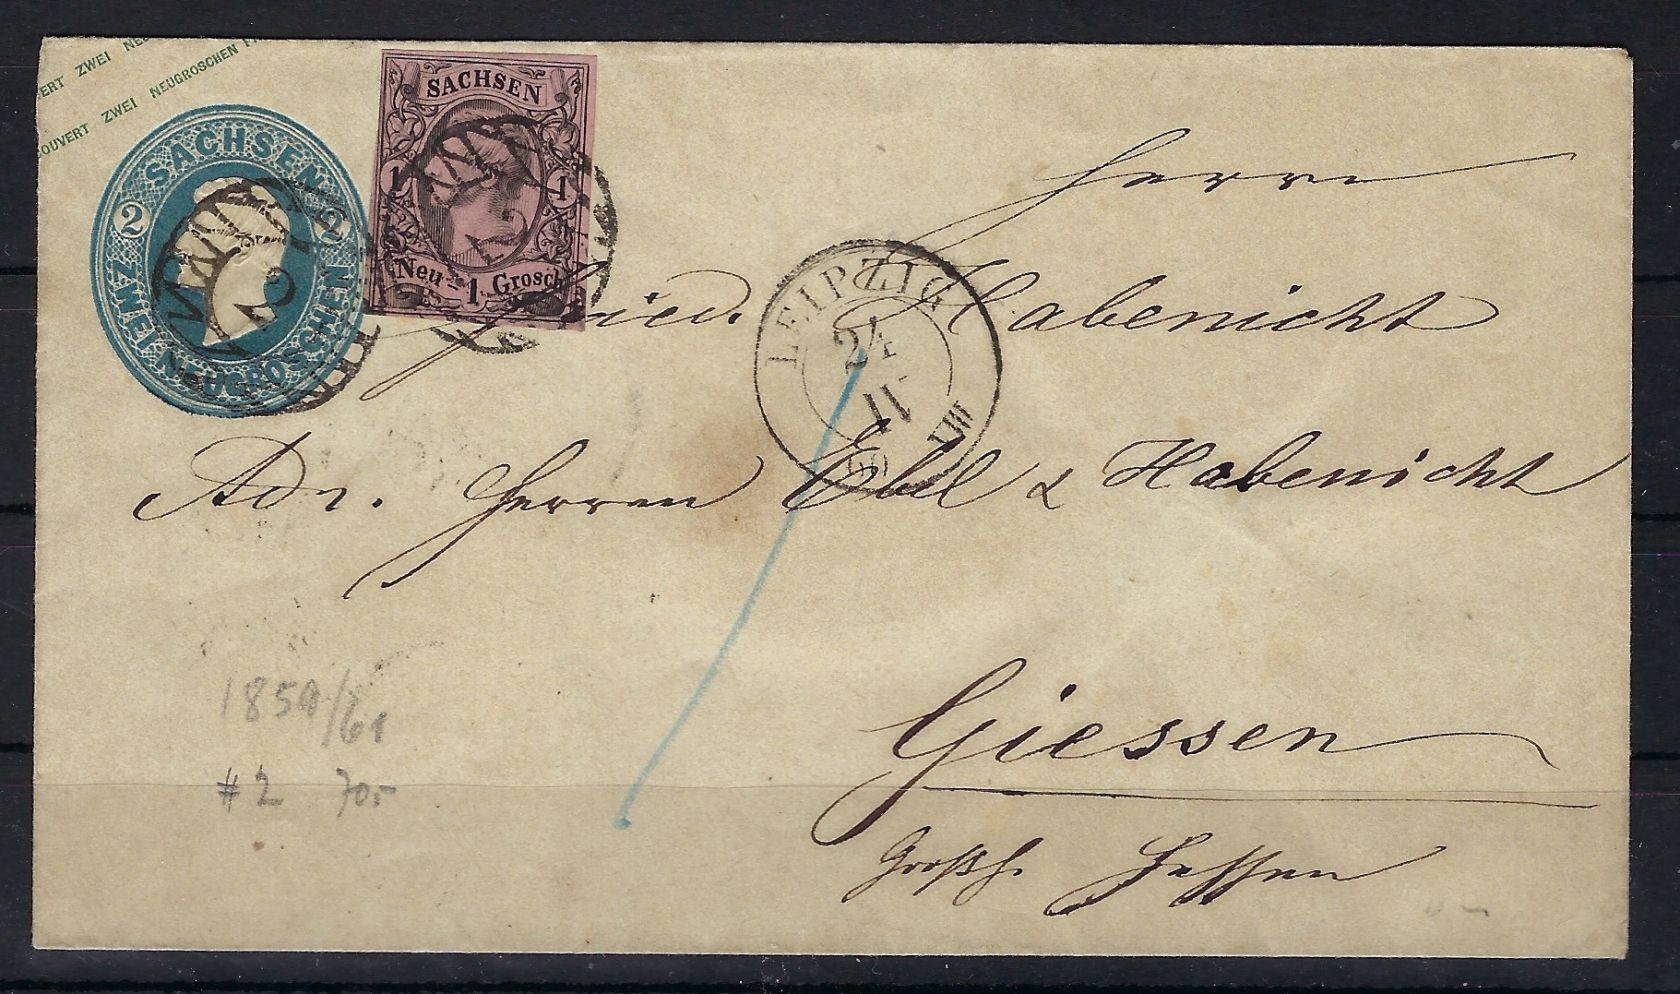 ERT ZWEI NEU
OUVERT ZWEI NEUGROSCHEN
SACHSEN
2 2
ZWEI NEUGROSCHEN
2
SACHSEN
1 1
Neu- 1 Grosch
2
LEIPZIG
24
II
60 VIII
Herrn
Fried. Habenicht
Adr. Herren Ebel & Habenicht
Giessen
Großh. Hessen
1859/61
#2 70.-